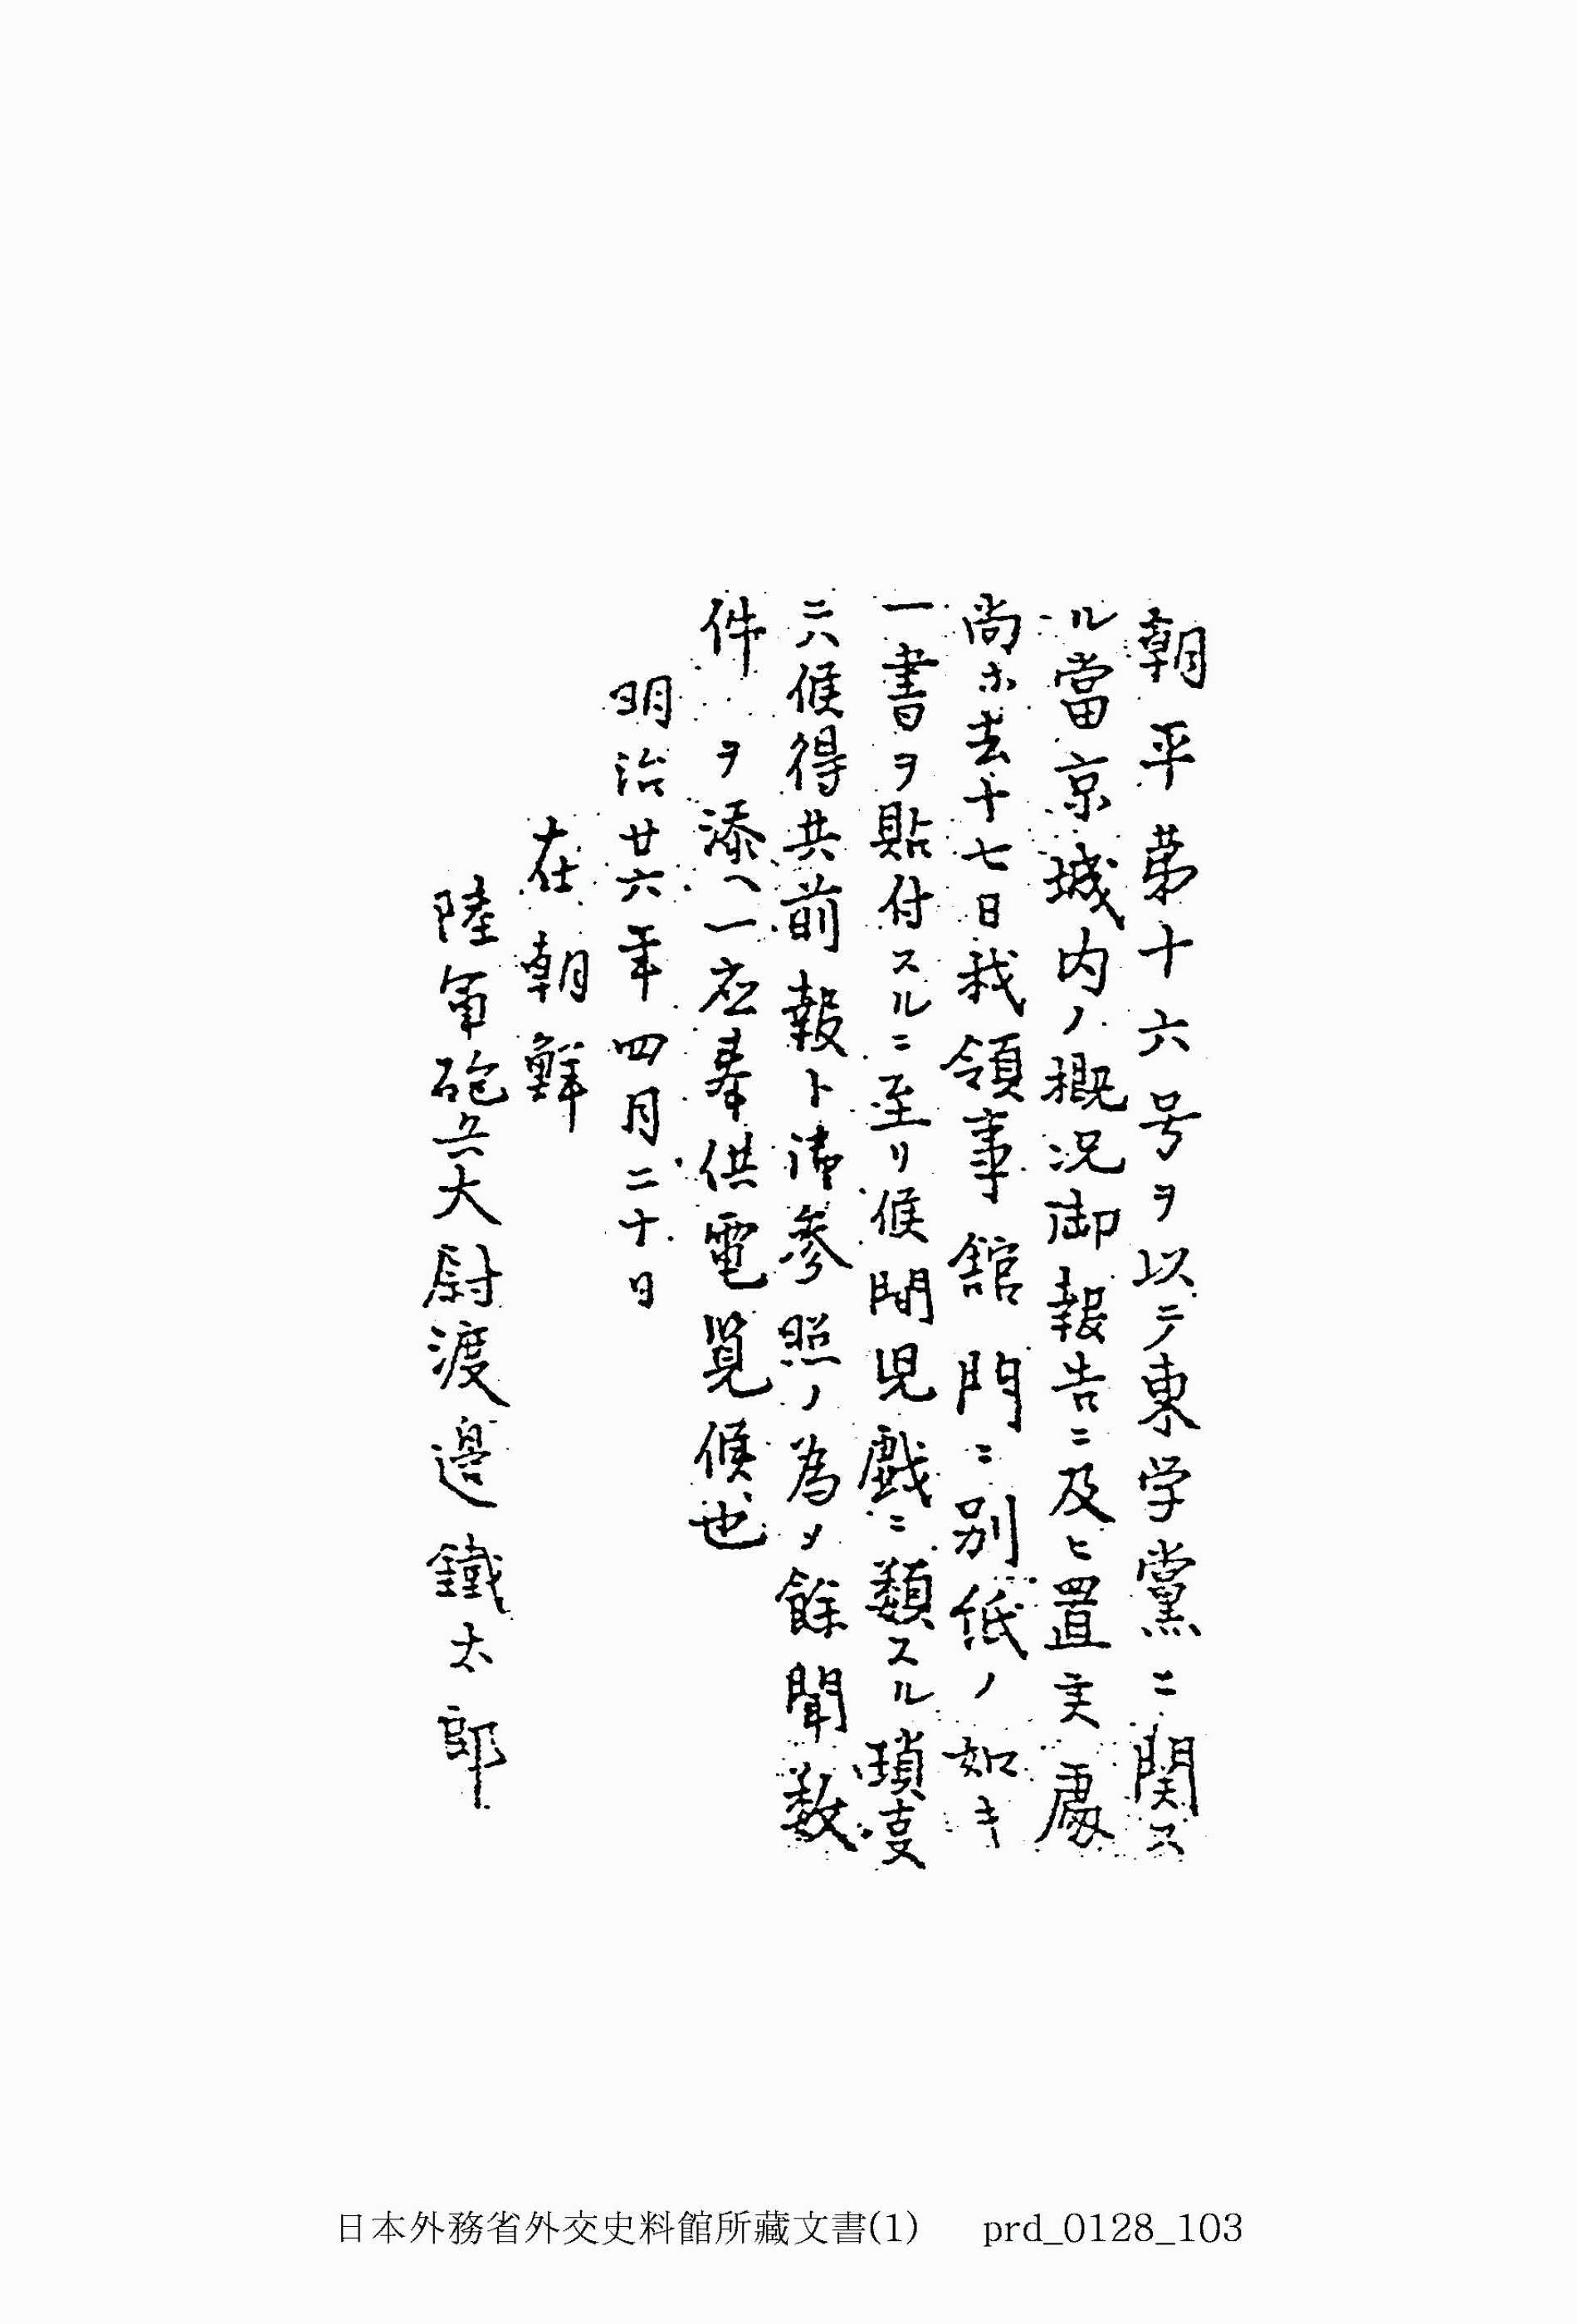 朝平第十六号ヲ以テ東学黨ニ関ス
ル當京城内ノ概況御報告ニ及ヒ置候處
尚ホ去十七日我領事舘門ニ別紙ノ如キ
一書ヲ貼付スルニ至リ候間児戯ニ類スル瑣事
ニハ候得共前報ト御参照ノ為メ餘聞数
件ヲ添ヘ一応奉供電覧候也
明治廿六年四月二十日
在朝鮮
陸軍砲兵大尉渡邉鐵太郎
日本外務省外交史料館所藏文書(1) prd_0128_103